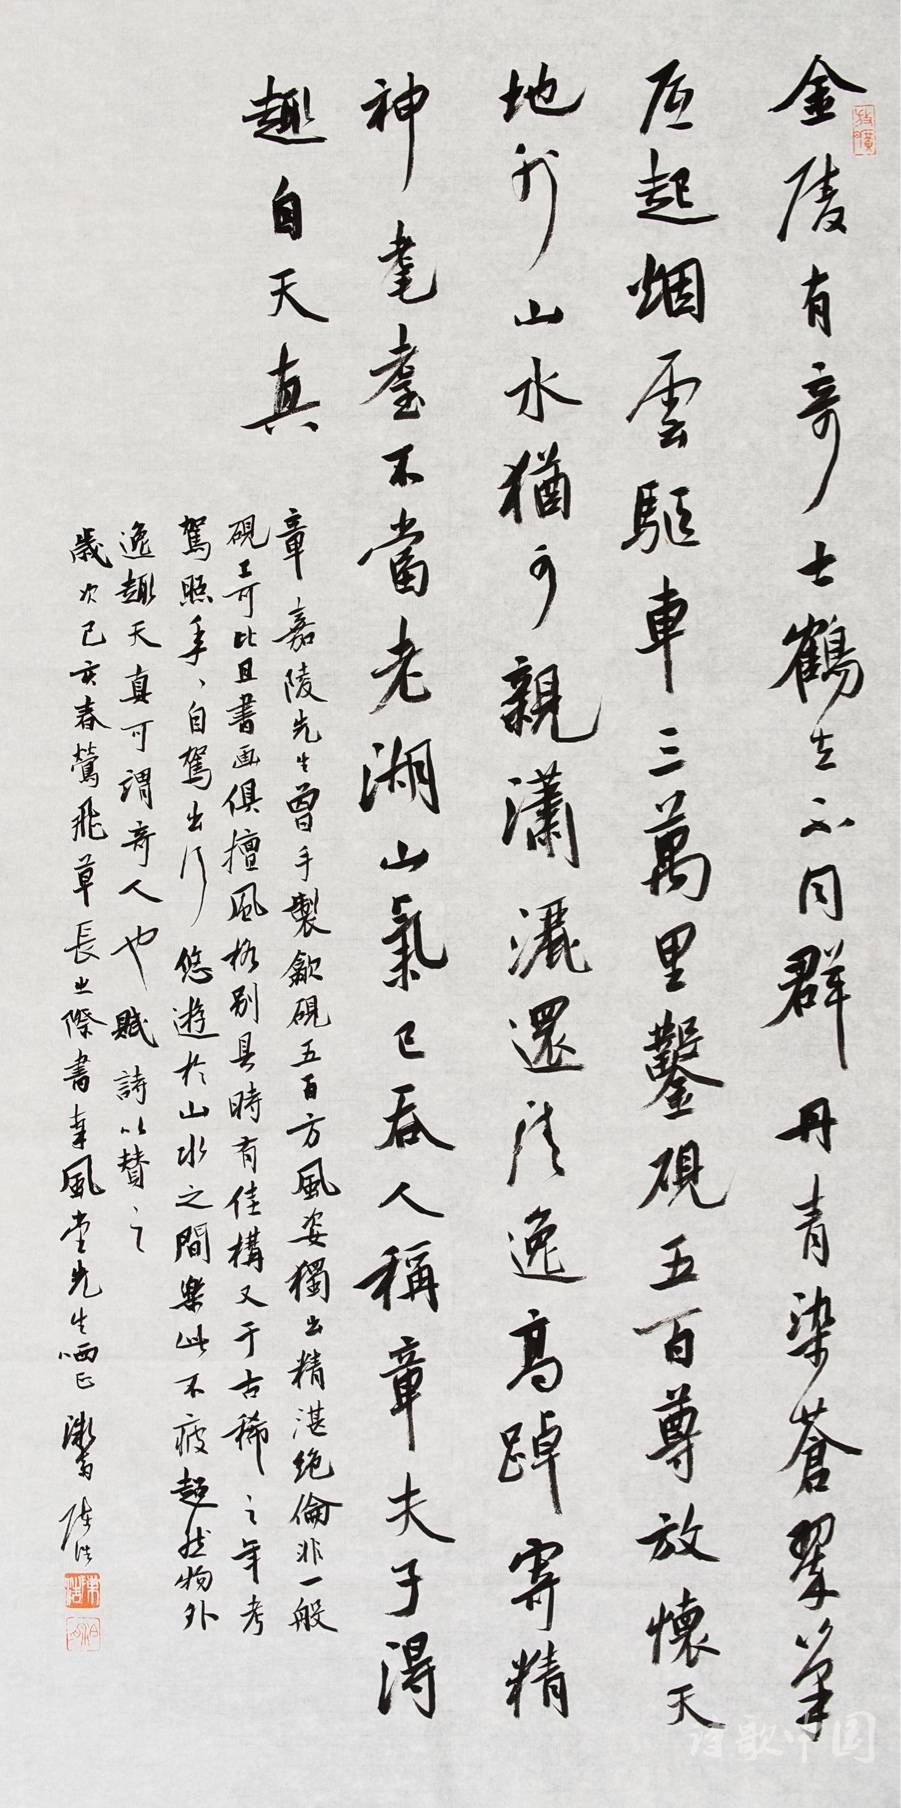 金陵有奇士鶴立不同群丹青染蒼翠筆
底起烟雲驅車三萬里鑿硯五百尊放懷天
地外山水猶可親瀟灑還清逸高踔寄精
神耄耋不當老湖山氣已吞人稱章夫子得
趣自天真
章嘉陵先生曾手製歙硯五百方風姿獨出精湛絶倫非一般
硯工可比且書画俱擅風格别具時有佳構又于古稀之年考
駕照手、自駕出行悠遊於山水之間樂此不疲超然物外
逸趣天真可謂奇人也賦詩以賛之
歲次己亥春鶯飛草長之際書奉風堂先生哂正 陳浩
陳浩
诗歌中国